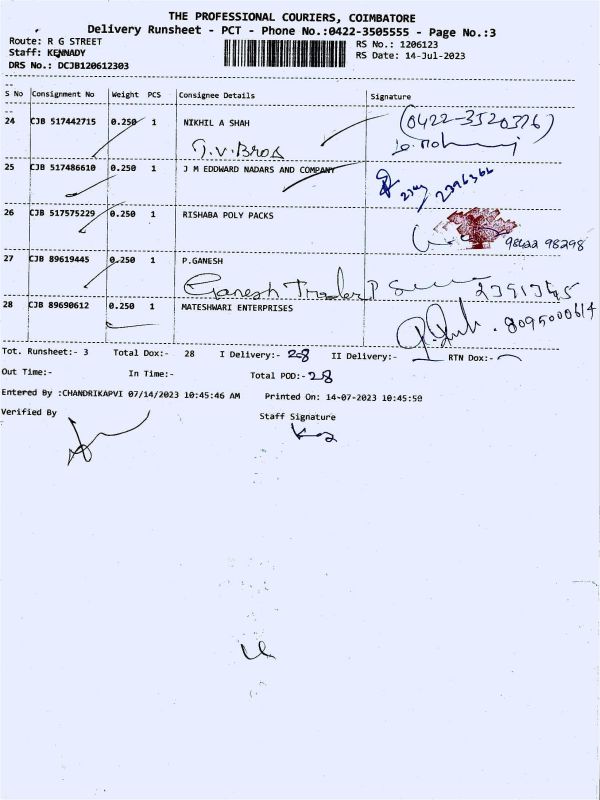 THE PROFESSIONAL COURIERS, COIMBATORE
Delivery Runsheet - PCT - Phone No.:0422-3505555 - Page No.:3
Route: R G STREET
RS No.: 1206123
Staff: KENNADY
RS Date: 14-Jul-2023
DRS No.: DCJB120612303
S No Consignment No Weight PCS Consignee Details Signature
24 CJB 517442715 0.250 1 NIKHIL A SHAH (0422-3520376)
J.V. Bros
25 CJB 517486610 0.250 1 J M EDDWARD NADARS AND COMPANY
2396366
26 CJB 517575229 0.250 1 RISHABA POLY PACKS
98422 98298
27 CJB 89619445 0.250 1 P.GANESH
Ganesh Trader 2391345
28 CJB 89690612 0.250 1 MATESHWARI ENTERPRISES
8095000614
Tot. Runsheet:- 3 Total Dox:- 28 I Delivery:- 28 II Delivery:- RTN Dox:-
Out Time:- In Time:- Total POD:- 28
Entered By :CHANDRIKAPVI 07/14/2023 10:45:46 AM Printed On: 14-07-2023 10:45:50
Verified By Staff Signature